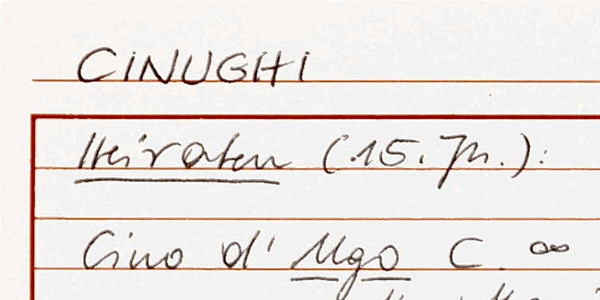 CINUGHI
Heiraten (15. Jh.):
Cino d' Ugo C. ∞